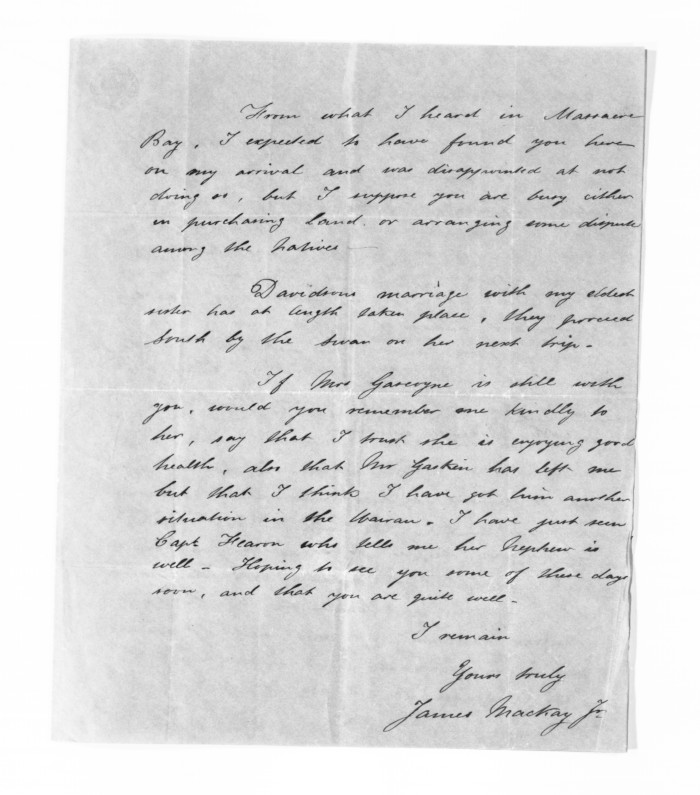 From what I heard in Massacre
Bay, I expected to have found you here
on my arrival and was disappointed at not
doing so, but I suppose you are busy either
in purchasing land or arranging some dispute
among the Natives —
Davidsons marriage with my eldest
sister has at length taken place, they proceed
South by the Swan on her next trip –
If Mrs Gascoyne is still with
you, would you remember me kindly to
her, say that I trust she is enjoying good
health, also that Mr Gaskin has left me
but that I think I have got him another
situation in the Wairau. I have just seen
Capt Fearon who tells me her Nephew is
well – Hoping to see you some of these days
soon, and that you are quite well –
I remain
Yours truly
James Mackay Jr.